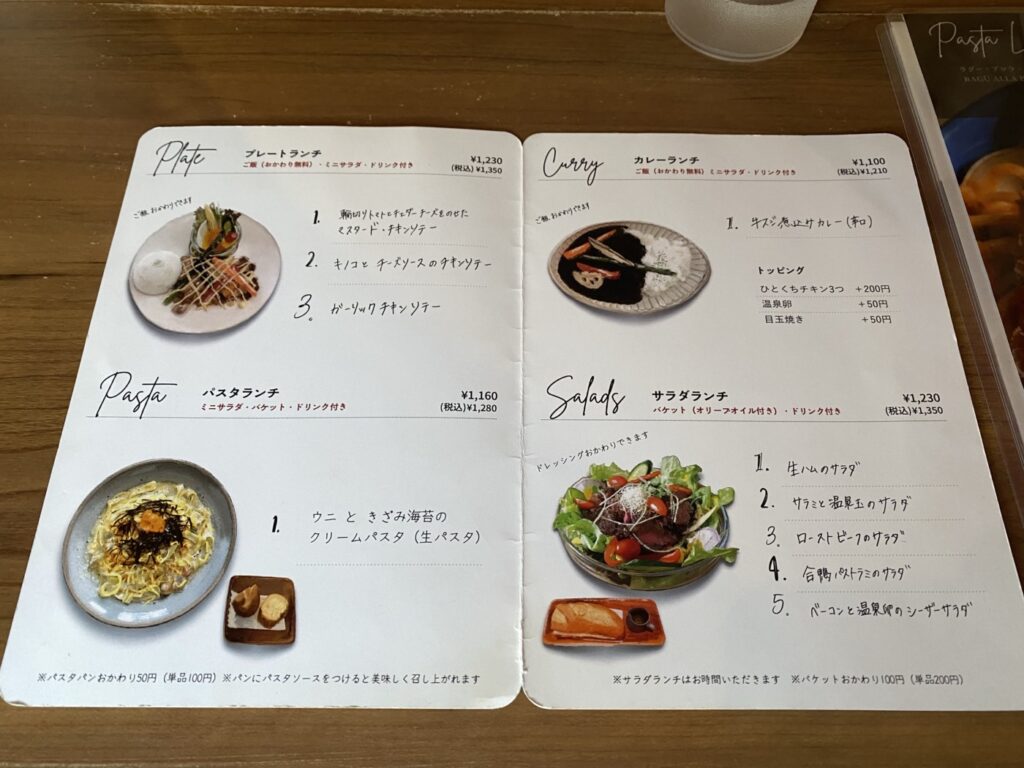 Plate
プレートランチ
¥1,230
ご飯（おかわり無料）・ミニサラダ・ドリンク付き
(税込)¥1,350
ご飯おかわりできます
1. 輪切りトマトとチェダーチーズをのせた
マスタード・チキンソテー
2. キノコと チーズソースのチキンソテー
3. ガーリックチキンソテー
Pasta
パスタランチ
¥1,160
ミニサラダ・バケット・ドリンク付き
(税込)¥1,280
1. ウニ と きざみ海苔の
クリームパスタ（生パスタ）
※パスタパンおかわり50円（単品100円）※パンにパスタソースをつけると美味しく召し上がれます
Curry
カレーランチ
¥1,100
ご飯（おかわり無料）ミニサラダ・ドリンク付き
(税込)¥1,210
ご飯おかわりできます
1. 牛スジ煮込みカレー(辛口)
トッピング
ひとくちチキン3つ +200円
温泉卵 +50円
目玉焼き +50円
Salads
サラダランチ
¥1,230
バケット（オリーブオイル付き）・ドリンク付き
(税込)¥1,350
ドレッシングおかわりできます
1. 生ハムのサラダ
2. サラミと温泉玉のサラダ
3. ローストビーフのサラダ
4. 合鴨パストラミのサラダ
5. ベーコンと温泉卵のシーザーサラダ
※サラダランチはお時間いただきます ※バケットおかわり100円（単品200円）
Pasta L
RAGU ALLA